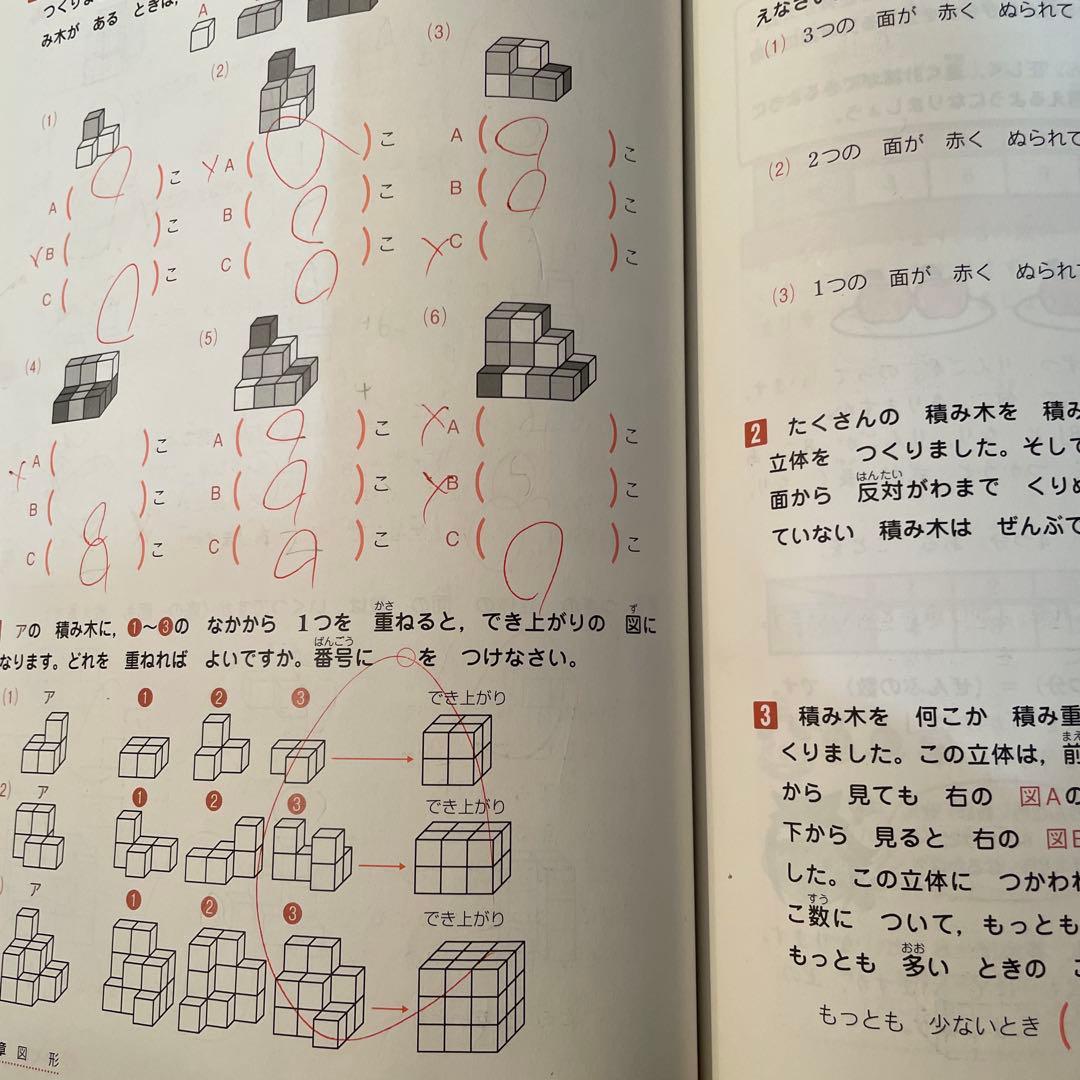 つくりま
み木が ある ときは,
A
(1)
(2)
(3)
A ( ) こ
B ( ) こ
C ( ) こ
A ( ) こ
B ( ) こ
C ( ) こ
A ( ) こ
B ( ) こ
C ( ) こ
(4)
(5)
(6)
A ( ) こ
B ( ) こ
C ( ) こ
A ( ) こ
B ( ) こ
C ( ) こ
A ( ) こ
B ( ) こ
C ( ) こ
アの 積み木に, ❶〜❸の なかから 1つを 重ねると, でき上がりの 図に
かさ
ず
なります。どれを 重ねれば よいですか。番号に ○を つけなさい。
ばんごう
(1) ア ❶ ❷ ❸ でき上がり
2) ア ❶ ❷ ❸ でき上がり
) ア ❶ ❷ ❸ でき上がり
章 図 形
えなさい
(1) 3つの 面が 赤く ぬられて
(2) 2つの 面が 赤く ぬられて
(3) 1つの 面が 赤く ぬられて
2 たくさんの 積み木を 積み
立体を つくりました。そして
面から 反対がわまで くりぬ
はんたい
ていない 積み木は ぜんぶで
3 積み木を 何こか 積み重
くりました。この立体は, 前
まえ
から 見ても 右の 図Aの
下から 見ると 右の 図B
した。この立体に つかわれ
こ数に ついて, もっとも
すう
もっとも 多い ときの こ
おお
もっとも 少ないとき (